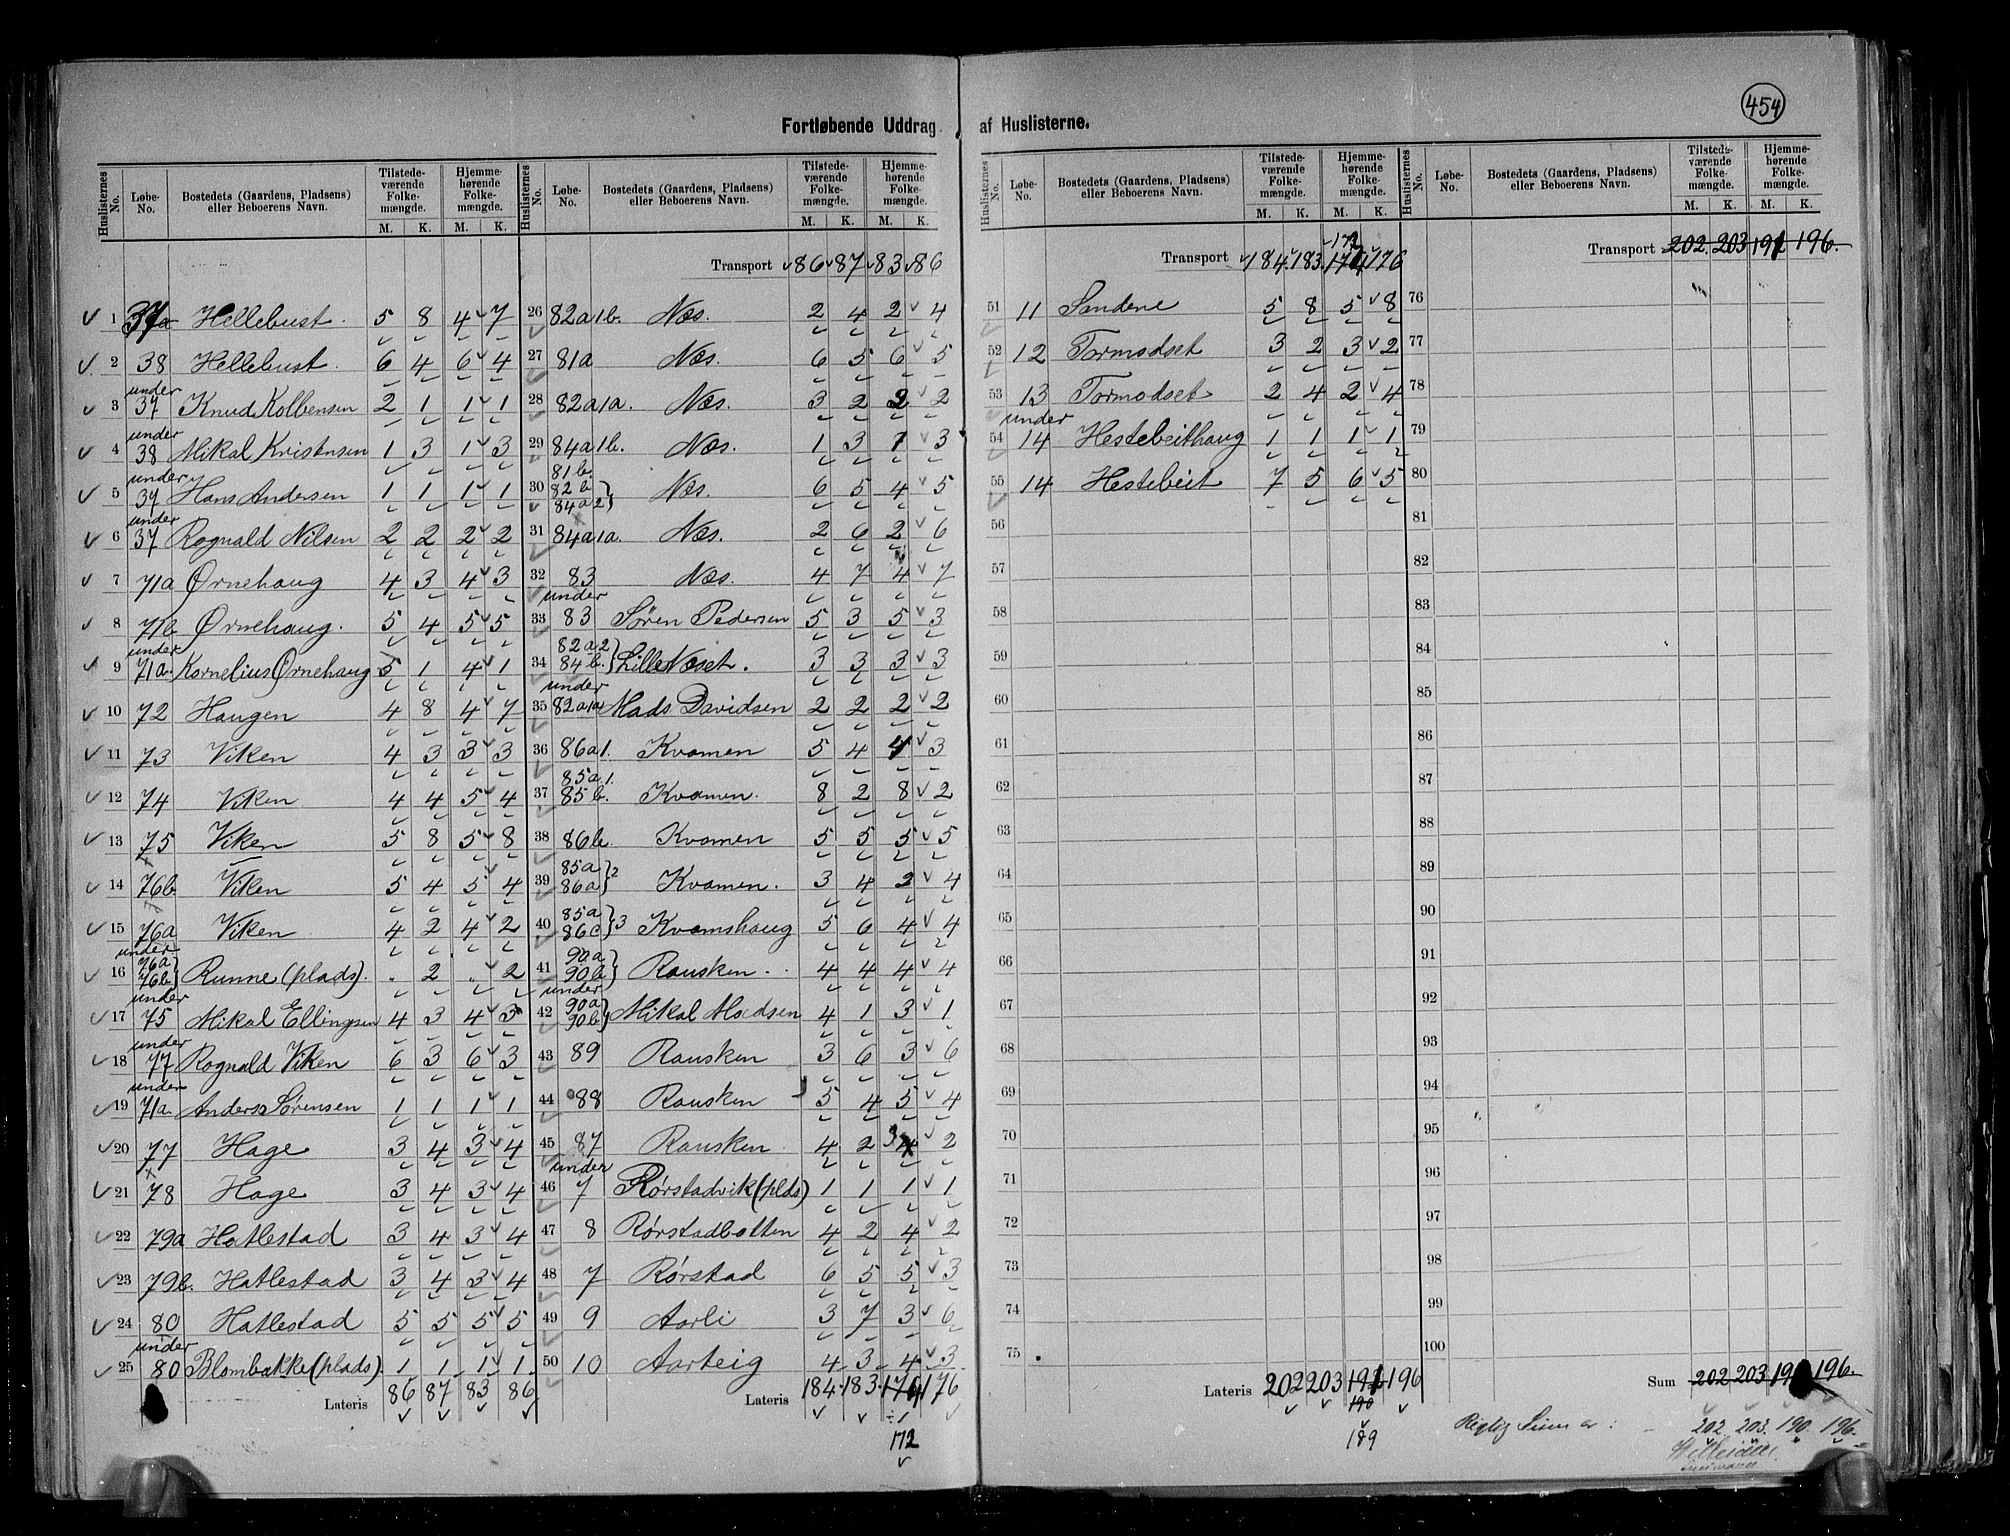 454
Fortløbende Uddrag af Huslisterne.
Huslisternes No. Løbe-No. Bostedets (Gaardens, Pladsens) eller Beboerens Navn. Tilstedeværende Folkemængde. M. K. Hjemmehørende Folkemængde. M. K.
1 37a Hellebust. 5 8 4 7
2 38 Hellebust. 6 4 6 4
3 under 37 Knud Kolbensen 2 1 1 1
4 under 38 Mikal Kristensen 1 3 1 3
5 under 37 Hans Andersen 1 1 1 1
6 under 37 Rognald Nilsen 2 2 2 2
7 71a Ørnehaug 4 3 4 3
8 71b Ørnehaug. 5 4 5 5
9 under 71a. Kornelius Ørnehaug 5 1 4 1
10 72 Haugen 4 8 4 7
11 73 Viken 4 3 3 3
12 74 Viken 4 4 5 4
13 75 Viken 5 8 5 8
14 76b Viken 5 4 5 4
15 76a Viken 4 2 4 2
16 under 76a 76b} Runne (plads). . 2 . 2
17 under 75 Mikal Ellingsen 4 3 4 3
18 under 77 Rognald Viken 6 3 6 3
19 under 71a. Anders Sørensen 1 1 1 1
20 77 Hage 3 4 3 4
21 78 Hage 3 4 3 4
22 79a Hatlestad 3 4 3 4
23 79b. Hatlestad 3 4 3 4
24 80 Hatlestad 5 5 5 5
25 under 80 Blombakke (plads). 1 1 1 1
Lateris 86 87 83 86
Huslisternes No. Løbe-No. Bostedets (Gaardens, Pladsens) eller Beboerens Navn. Tilstedeværende Folkemængde. M. K. Hjemmehørende Folkemængde. M. K.
Transport 86 87 83 86
26 82a1b. Næs. 2 4 2 4
27 81a Næs. 6 5 6 5
28 82a1a. Næs. 3 2 2 2
29 84a1b. Næs. 1 3 1 3
30 81b. 82b 84a2} Næs. 6 5 4 5
31 84a1a. Næs. 2 6 2 6
32 83 Næs. 4 7 4 7
33 under 83 Søren Pedersen 5 3 5 3
34 82a2 84b.} Lille Næset. 3 3 3 3
35 under 82a1a Mads Davidsen 2 2 2 2
36 86a1. Kvamen 5 4 4 3
37 85a.1. 85b. Kvamen. 8 2 8 2
38 86b. Kvamen 5 5 5 5
39 85a 86a}2 Kvamen. 3 4 2 4
40 85a 86c}3 Kvamshaug 5 6 4 4
41 90a 90b.} Rausken. 4 4 4 4
42 under 90a 90b} Mikal Madsen 4 1 3 1
43 89 Rausken 3 6 3 6
44 88 Rausken 5 4 5 4
45 87 Rausken 4 2 3 4 2
46 under 7 Rørstadvik (plds) 1 1 1 1
47 8 Rørstadbotten 4 2 4 2
48 7 Rørstad 6 5 5 3
49 9 Aarli 3 7 3 6
50 10 Aarteig 4 3 4 3
Lateris 184. 183. 174 176
172
Huslisternes No. Løbe-No. Bostedets (Gaardens, Pladsens) eller Beboerens Navn. Tilstedeværende Folkemængde. M. K. Hjemmehørende Folkemængde. M. K.
172
Transport 184. 183. 174 176
51 11 Sandene 5 8 5 8
52 12 Tormodset 3 2 3 2
53 13 Tormodset 2 4 2 4
54 under 14 Hestebeithaug 1 1 1 1
55 14 Hestebeit 7 5 6 5
56
57
58
59
60
61
62
63
64
65
66
67
68
69
70
71
72
73
74
75
Lateris 202 203 191 196
190
189
Huslisternes No. Løbe-No. Bostedets (Gaardens, Pladsens) eller Beboerens Navn. Tilstedeværende Folkemængde. M. K. Hjemmehørende Folkemængde. M. K.
Transport 202. 203 191 196.
76
77
78
79
80
81
82
83
84
85
86
87
88
89
90
91
92
93
94
95
96
97
98
99
100
Sum 202 203 196.
Rigtig Sum er : 202 203. 190. 196.